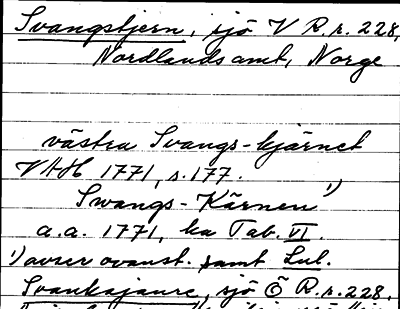 Svangstjern, sjö V R.r. 228,
Nordlands amt, Norge
västra Svangs-kjärnet
VAH 1771, s. 177.
Swangs-Kärnen 1)
a.a. 1771, ka Tab. VI.
1) avser ovanst. samt Lul.
Svankajaure, sjö Ö R.r. 228,